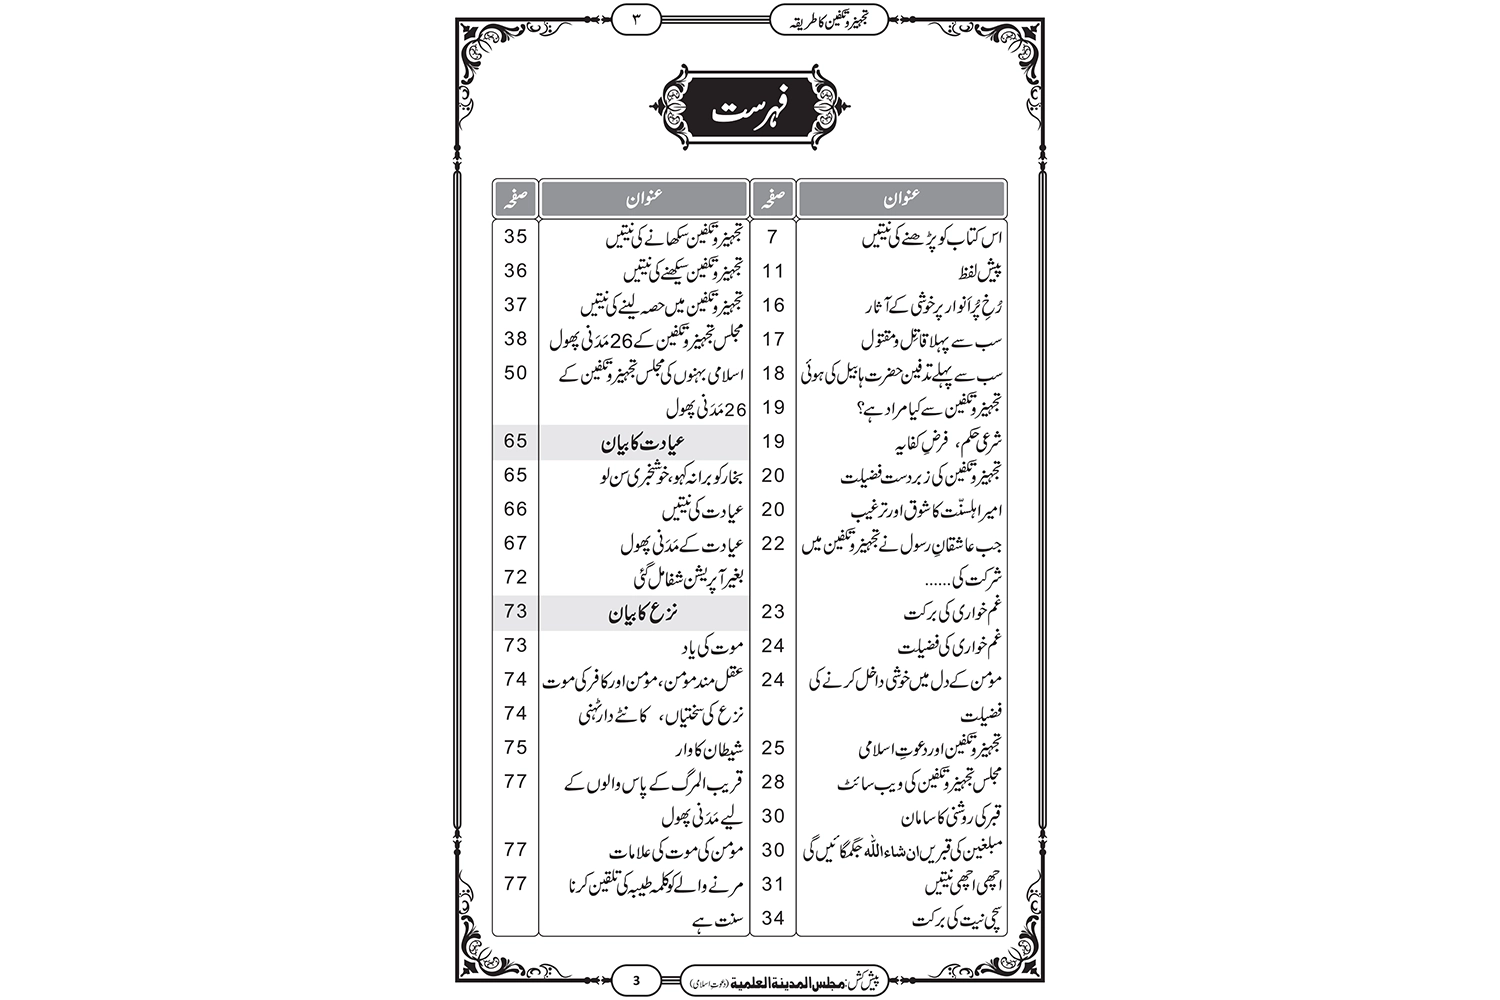 تجہیز و تکفین کا طریقہ
۳
فہرست
عنوان صفحہ
اس کتاب کو پڑھنے کی نیتیں 7
پیش لفظ 11
رُخِ پُر اَنوار پر خوشی کے آثار 16
سب سے پہلا قاتِل و مقتول 17
سب سے پہلے تدفین حضرت ہابیل کی ہوئی 18
تجہیز و تکفین سے کیا مراد ہے؟ 19
شرعی حکم، فرضِ کفایہ 19
تجہیز و تکفین کی زبردست فضیلت 20
امیر اہلسنّت کا شوق اور ترغیب 20
جب عاشقانِ رسول نے تجہیز و تکفین میں 22
شرکت کی......
غم خواری کی برکت 23
غم خواری کی فضیلت 24
مومن کے دل میں خوشی داخل کرنے کی 24
فضیلت
تجہیز و تکفین اور دعوتِ اسلامی 25
مجلس تجہیز و تکفین کی ویب سائٹ 28
قبر کی روشنی کا سامان 30
مبلغین کی قبریں ان شاء اللہ جگمگائیں گی 30
اچھی اچھی نیتیں 31
سچی نیت کی برکت 34
عنوان صفحہ
تجہیز و تکفین سکھانے کی نیتیں 35
تجہیز و تکفین سیکھنے کی نیتیں 36
تجہیز و تکفین میں حصہ لینے کی نیتیں 37
مجلس تجہیز و تکفین کے 26 مَدَنی پھول 38
اسلامی بہنوں کی مجلس تجہیز و تکفین کے 50
26 مَدَنی پھول
عیادت کا بیان 65
بخار کو برا نہ کہو، خوشخبری سن لو 65
عیادت کی نیتیں 66
عیادت کے مَدَنی پھول 67
بغیر آپریشن شفا مل گئی 72
نزع کا بیان 73
موت کی یاد 73
عقل مند مومن، مومن اور کافر کی موت 74
نزع کی سختیاں، کانٹے دار ٹہنی 74
شیطان کا وار 75
قریب المرگ کے پاس والوں کے 77
لیے مَدَنی پھول
مومن کی موت کی علامات 77
مرنے والے کو کلمہ طیبہ کی تلقین کرنا 77
سنت ہے
پیش کش: مجلس المدینۃ العلمیۃ (دعوت اسلامی)
3